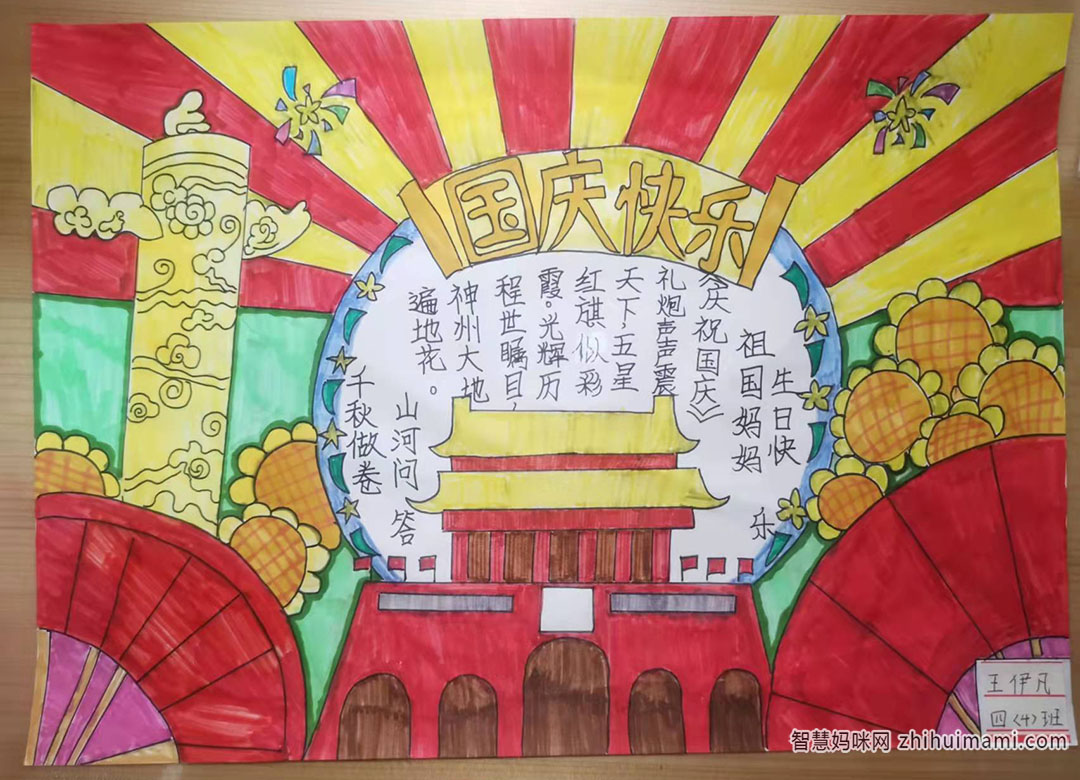 国庆快乐
生日快乐
祖国妈妈
《庆祝国庆》
礼炮声声震
天下，五星
红旗似彩
霞。光辉历
程世瞩目，
神州大地
遍地花。
山河问答
千秋做卷
王伊凡
四(4)班
智慧妈咪网 zhihuimami.com